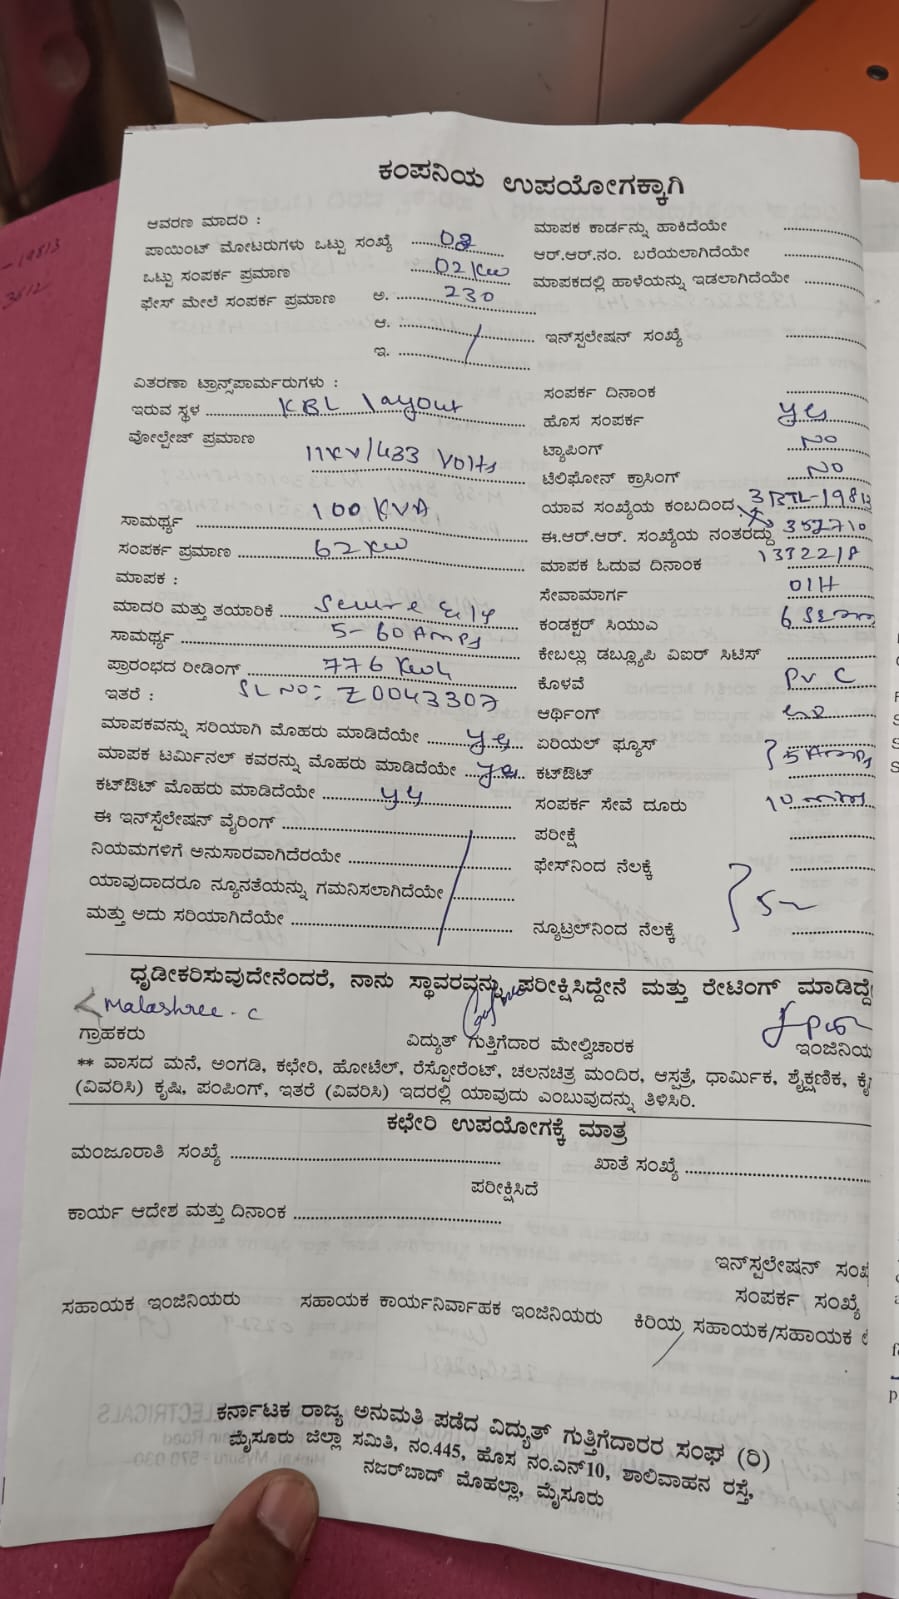 ಕಂಪನಿಯ ಉಪಯೋಗಕ್ಕಾಗಿ
ಆವರಣ ಮಾದರಿ :
ಪಾಯಿಂಟ್ ಮೋಟರುಗಳು ಒಟ್ಟು ಸಂಖ್ಯೆ
ಒಟ್ಟು ಸಂಪರ್ಕ ಪ್ರಮಾಣ 02 Kw
ಫೇಸ್ ಮೇಲೆ ಸಂಪರ್ಕ ಪ್ರಮಾಣ ಅ. 230
ಆ.
ಇ.
ವಿತರಣಾ ಟ್ರಾನ್ಸ್‌ಪಾರ್ಮರುಗಳು :
ಇರುವ ಸ್ಥಳ KBL layout
ವೋಲ್ಟೇಜ್ ಪ್ರಮಾಣ
11KV/433 Volts
ಸಾಮರ್ಥ್ಯ 100 KVA
ಸಂಪರ್ಕ ಪ್ರಮಾಣ 62 Kw
ಮಾಪಕ :
ಮಾದರಿ ಮತ್ತು ತಯಾರಿಕೆ
ಸಾಮರ್ಥ್ಯ 5-60 Amps
ಪ್ರಾರಂಭದ ರೀಡಿಂಗ್ 776 Kwh
ಇತರೆ : SL NO: Z0043307
ಮಾಪಕವನ್ನು ಸರಿಯಾಗಿ ಮೊಹರು ಮಾಡಿದೆಯೇ yes
ಮಾಪಕ ಟರ್ಮಿನಲ್ ಕವರನ್ನು ಮೊಹರು ಮಾಡಿದೆಯೇ yes
ಕಟ್‌ಔಟ್ ಮೊಹರು ಮಾಡಿದೆಯೇ yes
ಈ ಇನ್‌ಸ್ಪೆಲೇಷನ್ ವೈರಿಂಗ್
ನಿಯಮಗಳಿಗೆ ಅನುಸಾರವಾಗಿದೆರಯೇ
ಯಾವುದಾದರೂ ನ್ಯೂನತೆಯನ್ನು ಗಮನಿಸಲಾಗಿದೆಯೇ
ಮತ್ತು ಅದು ಸರಿಯಾಗಿದೆಯೇ
ಮಾಪಕ ಕಾರ್ಡನ್ನು ಹಾಕಿದೆಯೇ
ಆರ್.ಆರ್.ನಂ. ಬರೆಯಲಾಗಿದೆಯೇ
ಮಾಪಕದಲ್ಲಿ ಹಾಳೆಯನ್ನು ಇಡಲಾಗಿದೆಯೇ
ಇನ್‌ಸ್ಪಲೇಷನ್ ಸಂಖ್ಯೆ
ಸಂಪರ್ಕ ದಿನಾಂಕ
ಹೊಸ ಸಂಪರ್ಕ yes
ಟ್ಯಾಪಿಂಗ್ NO
ಟೆಲಿಫೋನ್ ಕ್ರಾಸಿಂಗ್ NO
ಯಾವ ಸಂಖ್ಯೆಯ ಕಂಬದಿಂದ
ಈ.ಆರ್.ಆರ್. ಸಂಖ್ಯೆಯ ನಂತರದ್ದು
ಮಾಪಕ ಓದುವ ದಿನಾಂಕ
ಸೇವಾಮಾರ್ಗ 01H
ಕಂಡಕ್ಟರ್ ಸಿಯುಎ
ಕೇಬಲ್ಲು ಡಬ್ಲ್ಯೂಪಿ ವಿಐಆರ್ ಸಿಟಿಸ್
ಕೊಳವೆ PVC
ಆರ್ಥಿಂಗ್
ಏರಿಯಲ್ ಫ್ಯೂಸ್
ಕಟ್‌ಔಟ್ 5 Amps
ಸಂಪರ್ಕ ಸೇವೆ ದೂರು
ಪರೀಕ್ಷೆ
ಫೇಸ್‌ನಿಂದ ನೆಲಕ್ಕೆ
ನ್ಯೂಟ್ರಲ್‌ನಿಂದ ನೆಲಕ್ಕೆ
ಧೃಡೀಕರಿಸುವುದೇನೆಂದರೆ, ನಾನು ಸ್ಥಾವರವನ್ನು ಪರೀಕ್ಷಿಸಿದ್ದೇನೆ ಮತ್ತು ರೇಟಿಂಗ್ ಮಾಡಿದ್ದೆ
Malashree - C
ಗ್ರಾಹಕರು ವಿದ್ಯುತ್ ಗುತ್ತಿಗೆದಾರ ಮೇಲ್ವಿಚಾರಕ ಇಂಜಿನಿಯ
** ವಾಸದ ಮನೆ, ಅಂಗಡಿ, ಕಛೇರಿ, ಹೋಟೆಲ್, ರೆಸ್ಟೋರೆಂಟ್, ಚಲನಚಿತ್ರ ಮಂದಿರ, ಆಸ್ಪತ್ರೆ, ಧಾರ್ಮಿಕ, ಶೈಕ್ಷಣಿಕ,
(ವಿವರಿಸಿ) ಕೃಷಿ, ಪಂಪಿಂಗ್, ಇತರೆ (ವಿವರಿಸಿ) ಇದರಲ್ಲಿ ಯಾವುದು ಎಂಬುವುದನ್ನು ತಿಳಿಸಿರಿ.
ಕಛೇರಿ ಉಪಯೋಗಕ್ಕೆ ಮಾತ್ರ
ಮಂಜೂರಾತಿ ಸಂಖ್ಯೆ ಖಾತೆ ಸಂಖ್ಯೆ
ಪರೀಕ್ಷಿಸಿದೆ
ಕಾರ್ಯ ಆದೇಶ ಮತ್ತು ದಿನಾಂಕ
ಇನ್‌ಸ್ಪಲೇಷನ್ ಸಂಖ
ಸಂಪರ್ಕ ಸಂಖ್ಯೆ
ಸಹಾಯಕ ಇಂಜಿನಿಯರು ಸಹಾಯಕ ಕಾರ್ಯನಿರ್ವಾಹಕ ಇಂಜಿನಿಯರು ಕಿರಿಯ ಸಹಾಯಕ/ಸಹಾಯಕ
ಕರ್ನಾಟಕ ರಾಜ್ಯ ಅನುಮತಿ ಪಡೆದ ವಿದ್ಯುತ್ ಗುತ್ತಿಗೆದಾರರ ಸಂಘ (ರಿ)
ಮೈಸೂರು ಜಿಲ್ಲಾ ಸಮಿತಿ, ನಂ.445, ಹೊಸ ನಂ.ಎನ್10, ಶಾಲಿವಾಹನ ರಸ್ತೆ,
ನಜರ್‌ಬಾದ್ ಮೊಹಲ್ಲಾ, ಮೈಸೂರು